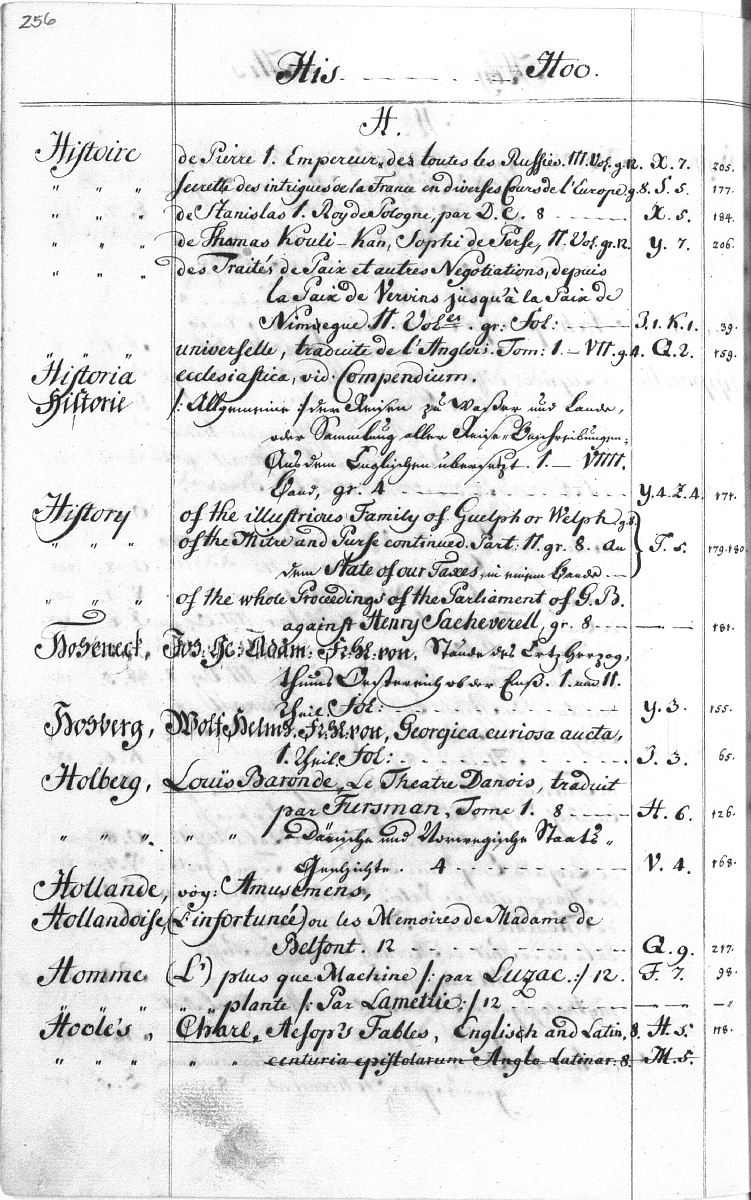 256
His - - - - - Hoo.
H.
Histoire de Pierre 1. Empereur des toutes les Russies. III Vol. g. 12. X. 7. 205.
" " " secrette des intrigues de la France en diverses Cours de l'Europe g. 8. S. 5. 177.
" " " de Stanislas 1. Roy de Pologne, par D. C. 8 - - - X. 5. 184.
" " " de Thomas Kouli-Kan, Sophi de Perse, II. Vol. gr. 12. Y. 7. 206.
" " " des Traités de Paix et autres Negotiations, depuis
la Paix de Vervins jusqu'à la Paix de
Nimuegue II. Vol. gr: Fol: - - - J. 1. K. 1. 39.
" " " universelle, traduite de l'Anglois. Tom: 1. - VII. g. 4. Q. 2. 159.
Historia ecclesiastica, vid: Compendium.
Historie /: Allgemeine :/ der Reisen zu Waßer und Lande,
oder Sammlung aller Reise Beschreibungen;
Aus dem Englischen übersetzt. 1. - VIIII.
Band, gr. 4 - - - Y. 4. Z. 4. 171.
History of the illustrious Family of Guelph or Welph g. 8.
" " " of the Mitre and Purse continued. Part: II. gr. 8. an } T. 5. 179. 180.
dem State of our Taxes, in einem Bande - - -
" " " of the whole Proceedings of the Parliament of G. B.
against Henry Sacheverell, gr. 8 - - - 181.
Hoheneck, Jos: Ge: Adam: Fr: H: von, Stände des Ertz Herzog,
thums Oesterreich ob der Enß. 1. und II.
theil Fol: - - - Y. 3. 155.
Hohberg, Wolf Helmh. Fr: H: von, Georgica curiosa aucta,
1. theil Fol: - - - J. 3. 65.
Holberg, Louïs Baron de, Le Theatre Danois, traduit
par Fursman, Tome 1. 8 - - - H. 6. 126.
" " " " " Dänische und Norwegische Staats-
Geschichte. 4 - - - V. 4. 168.
Hollande, voy: Amusemens,
Hollandoise, (L'infortunée) ou les Memoires de Madame de
Belfont. 12 - - - Q. 9. 217.
Homme (L') plus que Machine /: par Luzac :/ 12. F. 7. 98.
" " plante /: Par Lamettrie :/ 12 - - - " - "
Hoole's, Charl, Aesop's Fables, English and Latin, 8. H. 5. 118.
" " " " " centuria epistolarum Anglo Latinar: 8. M. 5.